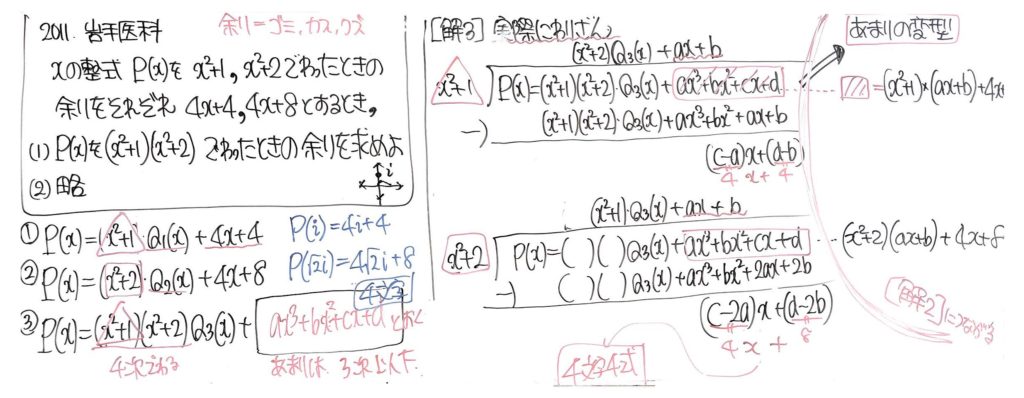 2011. 岩手医科 余り=ゴミ、カス、クズ
xの整式 P(x)を x²+1, x²+2でわったときの
余りをそれぞれ 4x+4, 4x+8とするとき,
(1) P(x)を(x²+1)(x²+2) でわったときの余りを求めよ
(2) 略
i
① P(x)=(x²+1)・Q₁(x)+4x+4 P(i)=4i+4
② P(x)=(x²+2)・Q₂(x)+4x+8 P(√2i)=4√2i+8
4文字
③ P(x)=(x²+1)(x²+2)Q₃(x)+ax³+bx²+cx+d とおく
4次でわる あまりは 3次以下
[解3] 実際にわりざん
(x²+2)Q₃(x)+ax+b
x²+1 P(x)=(x²+1)(x²+2)・Q₃(x)+ax³+bx²+cx+d
−) (x²+1)(x²+2)・Q₃(x)+ax³+bx²+ax+b
(c-a)x+(d-b)
4 x + 4
(x²+1)・Q₃(x)+ax+b
x²+2 P(x)=( )( )Q₃(x)+ax³+bx²+cx+d
−) ( )( )Q₃(x)+ax³+bx²+2ax+2b
(c-2a)x+(d-2b)
4 x + 8
4文字4式
あまりの変型
=(x²+1)×(ax+b)+4x+
(x²+2)(ax+b)+4x+8
[解2]につながる